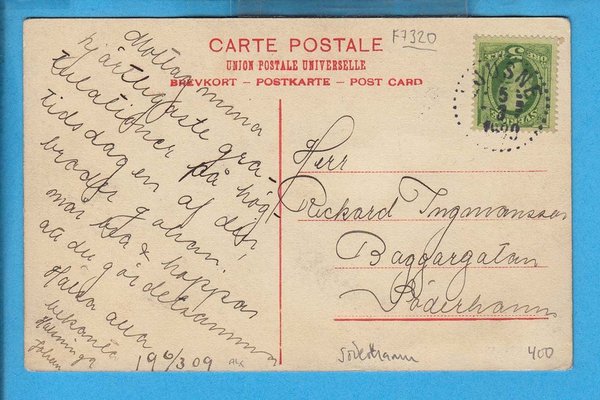 F7320
CARTE POSTALE
UNION POSTALE UNIVERSELLE
BREVKORT – POSTKARTE – POST CARD
Mottag mina
hjärtligaste gra-
tulationer på hög-
tidsdagen af din
broder Johan.
mår bra & hoppas
att du gör detsamma
Hälsa alla
bekanta
Helsninga
Johan
19 6/3 09
Herr
Rickard Ingmansson
Baggargatan
Söderhamn
Söderhamn
400